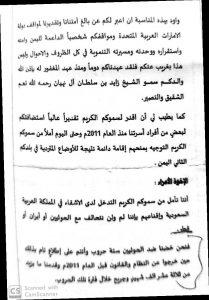 وأود بهذه المناسبة ان اعبر لكم عن بالغ أمتناننا وتقديرنا لمواقف دولة
الامارات العربية المتحدة ومواقفكم شخصياً الداعمة لليمن وأمنه
واستقراره ووحدته ومسيرته التنموية في كل الظروف والاحوال وليس
هذا بغريب عنكم فلقد عهدناكم دوماً ومنذ عهد المغفور له بإذن الله
والدكم سمو الشيخ زايد بن سلطان آل نهيان رحمه الله نعم
الشقيق والنصير.
كما يطيب لي أن اقدر لسموكم الكريم تقديراً عالياً استضافتكم
لبعض من أفراد أسرتنا منذ العام 2011م وحتى اليوم أملاً من سموكم
الكريم التوجيه بمنحهم إقامة دائمة نتيجة للأوضاع المتردية في بلدكم
الثاني اليمن.
الأخ
أننا نأمل من سموكم الكريم التدخل لدى الاشقاء في المملكة العربية
السعودية وإقناعهم بإننا لم ولن نتحالف مع الحوثيون أو أيران أو
فنحن خضنا ضد الحوثيون ستة حروب وأنتم على إطلاع تام بذلك
حين خرجوا عن النظام والقانون قبل العام 2011م وقدمنا ما يزيد
عن ثلاثة عشر الف شهيد وجريح خلال فترة تلك الحروب.
CS Scanned with
CamScanner